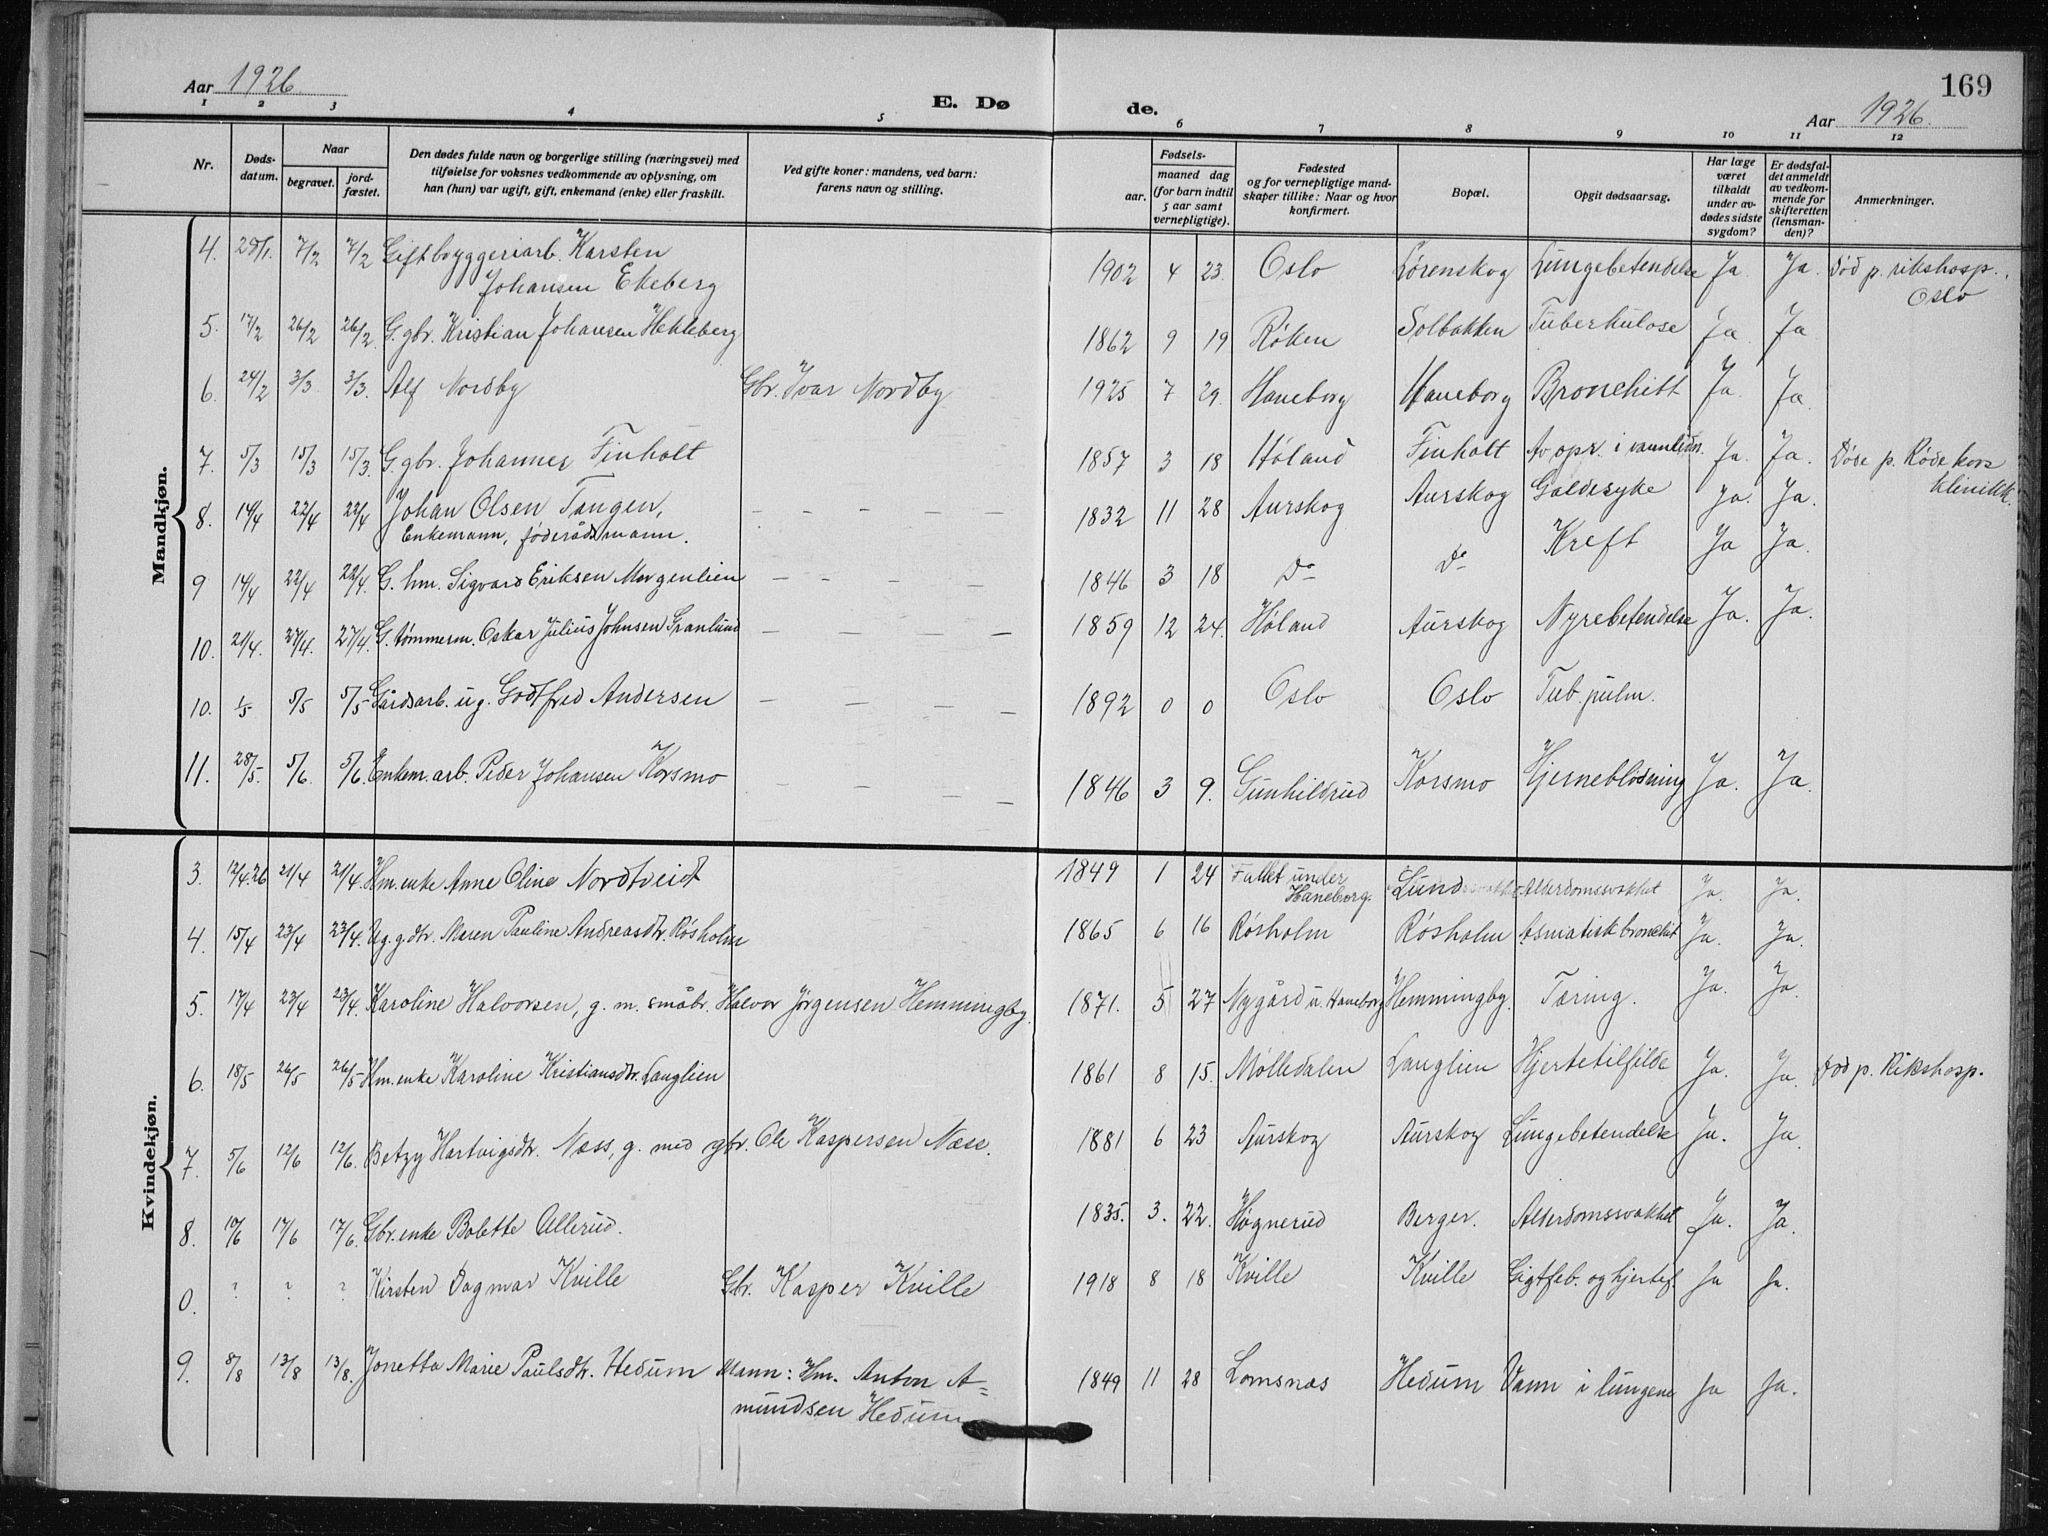 Aar 1926
E. Døde.
169
Aar 1926.
1 2 3 4 5 6 7 8 9 10 11 12
Nr.
Døds-datum.
Naar
begravet.
jord-fæstet.
Den dødes fulde navn og borgerlige stilling (næringsvei) med
tilføielse for voksnes vedkommende av oplysning, om
han (hun) var ugift, gift, enkemand (enke) eller fraskilt.
Ved gifte koner: mandens, ved barn:
farens navn og stilling.
Fødsels-
aar.
maaned dag
(for barn indtil
5 aar samt
vernepligtige).
Fødested
og for vernepligtige mand-
skaper tillike: Naar og hvor
konfirmert.
Bopæl.
Opgit dødsaarsag.
Har læge
været
tilkaldt
under av-
dødes sidste
sygdom?
Er dødsfal-
det anmeldt
av vedkom-
mende for
skifteretten
(lensman-
den)?
Anmerkninger.
Mandkjøn.
4. 28/1. 7/2 7/2 Gift byggeriarb. Karsten Johansen Ekeberg 1902 4 23. Oslo Lørenskog Lungebetendelse Ja. Ja. Død p. rikshosp. Oslo
5. 17/2 26/2 26/2 G. gbr. Kristian Johansen Hekleberg 1862 9 19 Røken Solbakken Tuberkulose Ja Ja
6. 24/2 3/3 3/3. Alf Nordby Gbr. Ivar Nordby 1925 7 29. Haneborg Haneborg Bronchitt Ja. Ja.
7. 5/3 15/3 15/3. G. gbr. Johannes Finholt 1857 3 18 Høland Finholt Av opr. i vannlidn. Ja. Ja. Døde p. Røde kors klinikk.
8. 14/4 22/4 22/4 Johan Olsen Tangen, Enkemann, føderådsmann. – – – – – 1832 11 28 Aurskog Aurskog Galdesyke Ja. Ja.
9 14/4 22/4 22/4. G. hm. Sigvard Eriksen Morgenlien – – – – – 1846 3 18 Do Do Kreft Ja Ja.
10. 21/4. 27/4. 27/4. G. tømmerm. Oskar Julius Johnsen Granlund – – – – 1859 12 24. Høland Aurskog Nyrebetendelse Ja. Ja.
10. 1/5 5/5 5/5 Gårdsarb. ug. Godtfred Andersen – – – – 1892 0 0 Oslo Oslo Tub. pulm.
11. 28/5. 5/6. 5/6. Enkem. arb. Peder Johansen Korsmo – – – – 1846 3 9. Gunhildrud Korsmo Hjerneblødning Ja. Ja.
Kvindekjøn.
3. 12/4.26 21/4 21/4. Hm. enke Anne Oline Nordtveidt 1849 1 24 Fallet under Haneborg. Lund Alderdomssvakhet Ja. Ja.
4. 15/4 23/4 23/4. Ug. g.dtr. Maren Pauline Andreasdtr. Røsholm 1865 6 16 Røsholm Røsholm Asmatisk bronchit Ja. Ja.
5. 17/4 23/4 23/4. Karoline Halvorsen, g. m. småbr. Halvor Jørgensen Hemmingby. 1871. 5 27 Nygård u. Haneborg Hemmingby. Tæring. Ja. Ja.
6. 18/5 26/5 26/5 Hm. enke Karoline Kristiansdtr. Langlien 1861 8 15. Mølledalen Langlien Hjertetilfelde Ja. Ja. Død p. Rikshosp.
7. 5/6 12/6 12/6. Betzy Hartvigsdtr. Næss, g. med gbr. Ole Kaspersen Næss. 1881 6 23 Aurskog Aurskog Lungebetendelse Ja. Ja.
8. 10/6 17/6 17/6. Gbr. enke Bolette Ollerud. 1835. 3. 22. Høgnerud Berger. Alderdomssvakhet Ja. Ja.
0. ? ? ? Kirsten Dagmar Kville Gbr. Kasper Kville 1918 8 18 Kville Kville Gigtfeb. og hjertef. Ja Ja.
9. 8/8 13/8 13/8. Jonette Marie Paulsdtr. Hedum Mann: Hm. Anton A= mundsen Hedum 1849 11 28 Lomsnæs Hedum Vann i lungene Ja Ja.